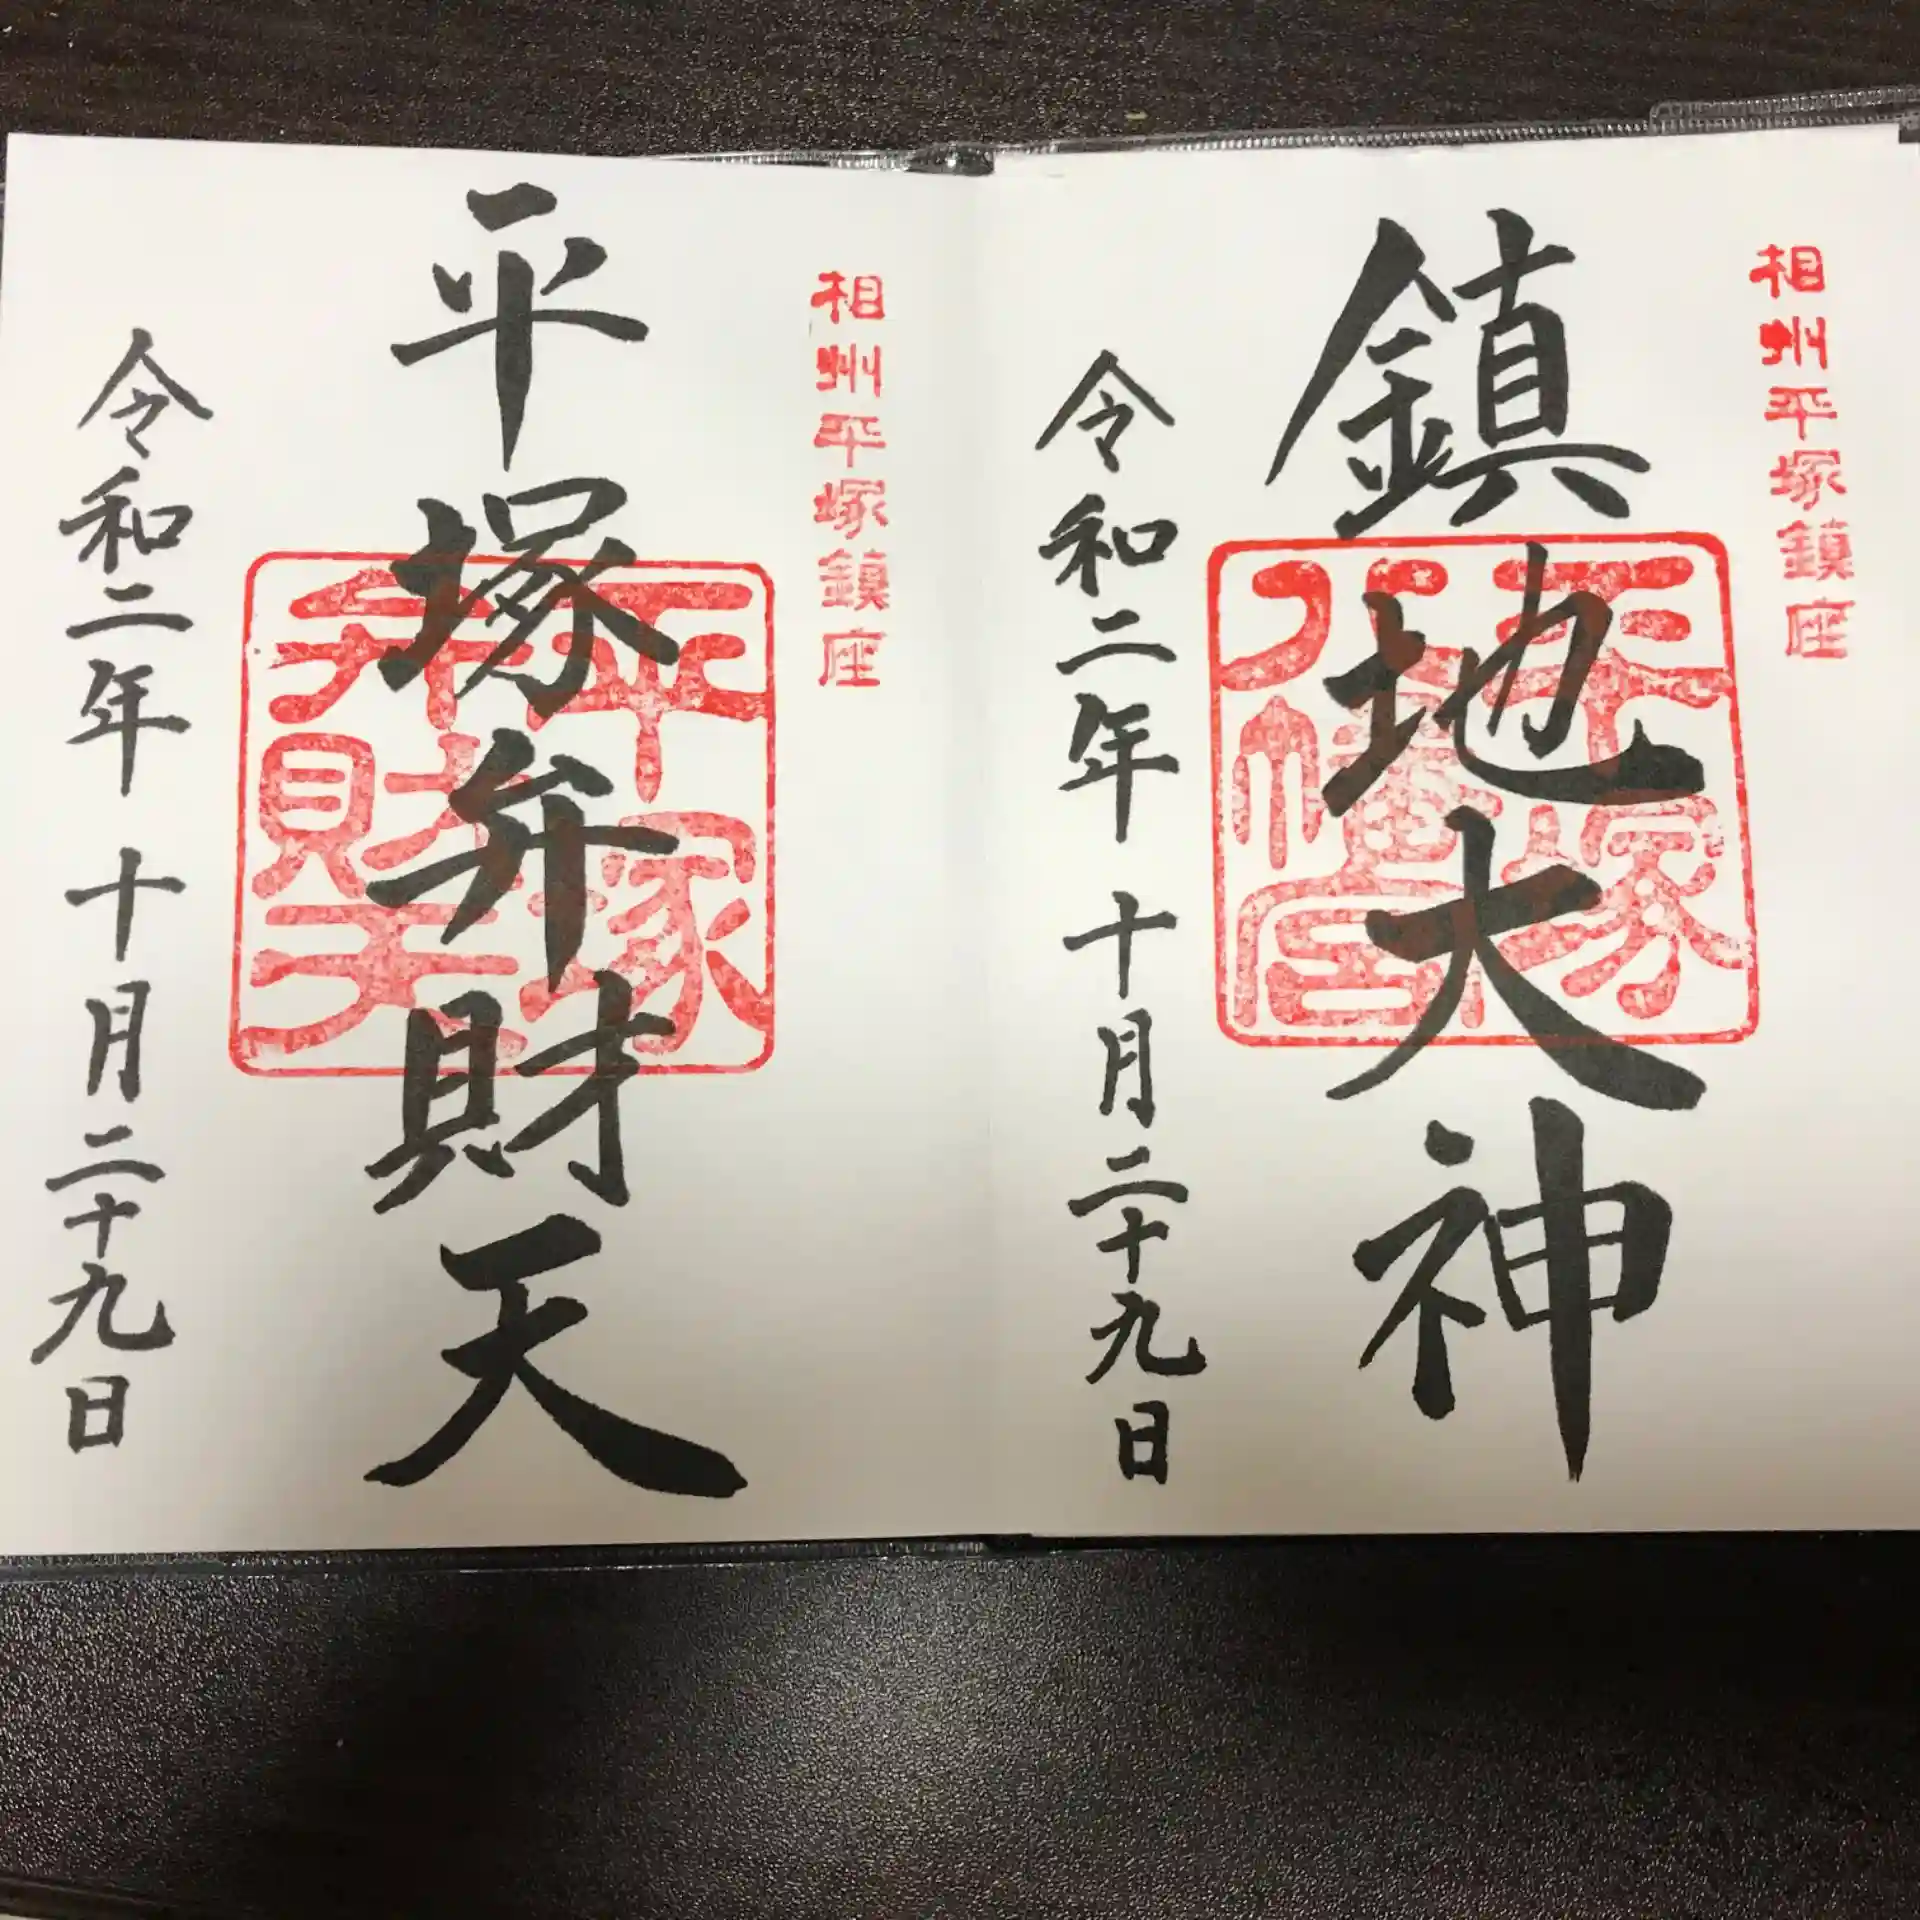 相州平塚鎮座
鎮地大神
平塚
八幡宮
令和二年 十月二十九日
相州平塚鎮座
平塚弁財天
平塚
弁財天
令和二年 十月二十九日